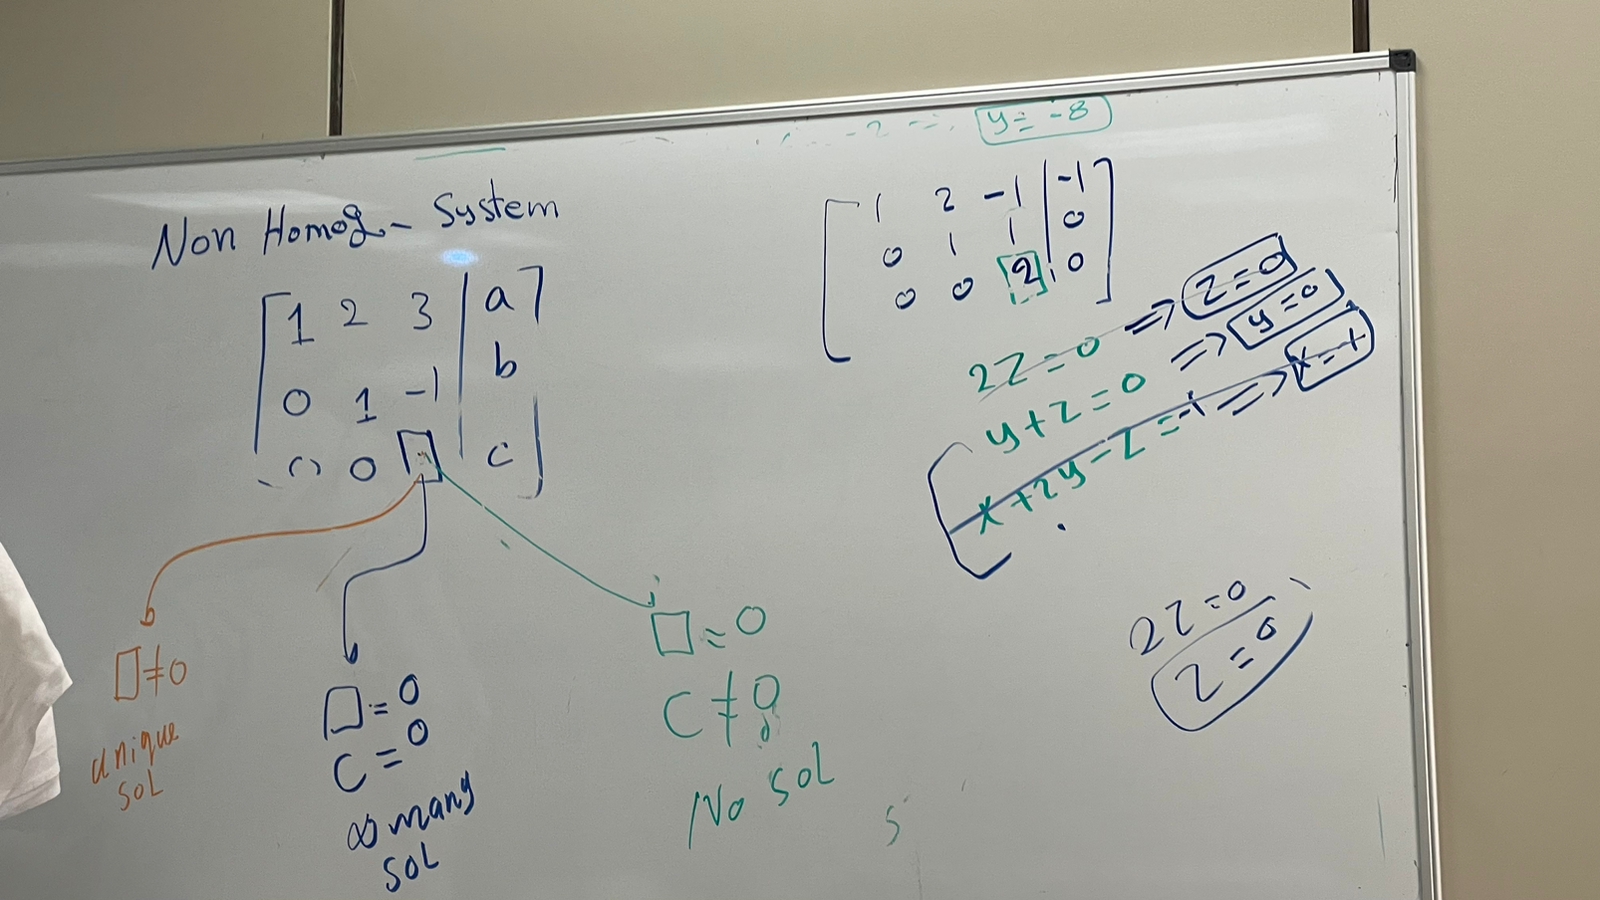 y = -8
Non Homog- System
1 2 3 | a
0 1 -1 | b
0 0 □ | c
□≠0
unique
sol
□=0
C=0
∞ many
sol
□=0
C≠0
No sol
1 2 -1 | -1
0 1 1 | 0
0 0 2 | 0
2Z=0 => Z=0
y+z=0 => y=0
x+2y-z=-1 =>
2Z=0
Z=0